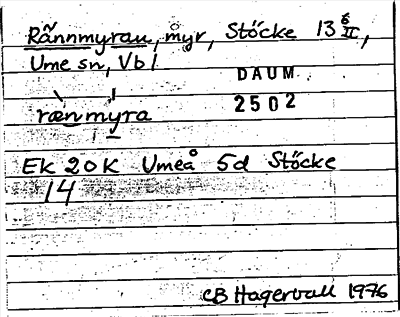 Rännmyran, myr, Stöcke 13 6/II,
Ume sn, Vbl
DAUM
2502
rænmyra
Ek 20K Umeå 5d Stöcke
14
CB Hagervall 1976